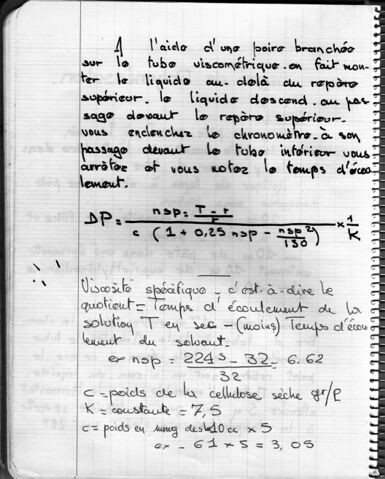 A l'aide d'une poire branchée
sur le tube viscométrique. on fait mon-
ter le liquide au-delà du repère
supérieur. le liquide descend. au pas
sage devant le repère supérieur.
vous enclenchez le chronomètre. à son
passage devant le tube inférieur vous
arrêtez et vous notez le temps d'écou
lement.
DP = nsp = T - t / t
c (1 + 0,25 nsp - nsp² / 150) × 1 / K
Viscosité spécifique - c'est-à-dire le
quotient = Temps d'écoulement de la
solution T en sec - (moins) Temps d'écou
lement du solvant.
ex nsp = 224s - 32 - 6.62
32
c = poids de la cellulose sèche gr/l
K = constante = 7,5
c = poids en mmg des 10 cc × 5
ex - 61 × 5 = 3,05